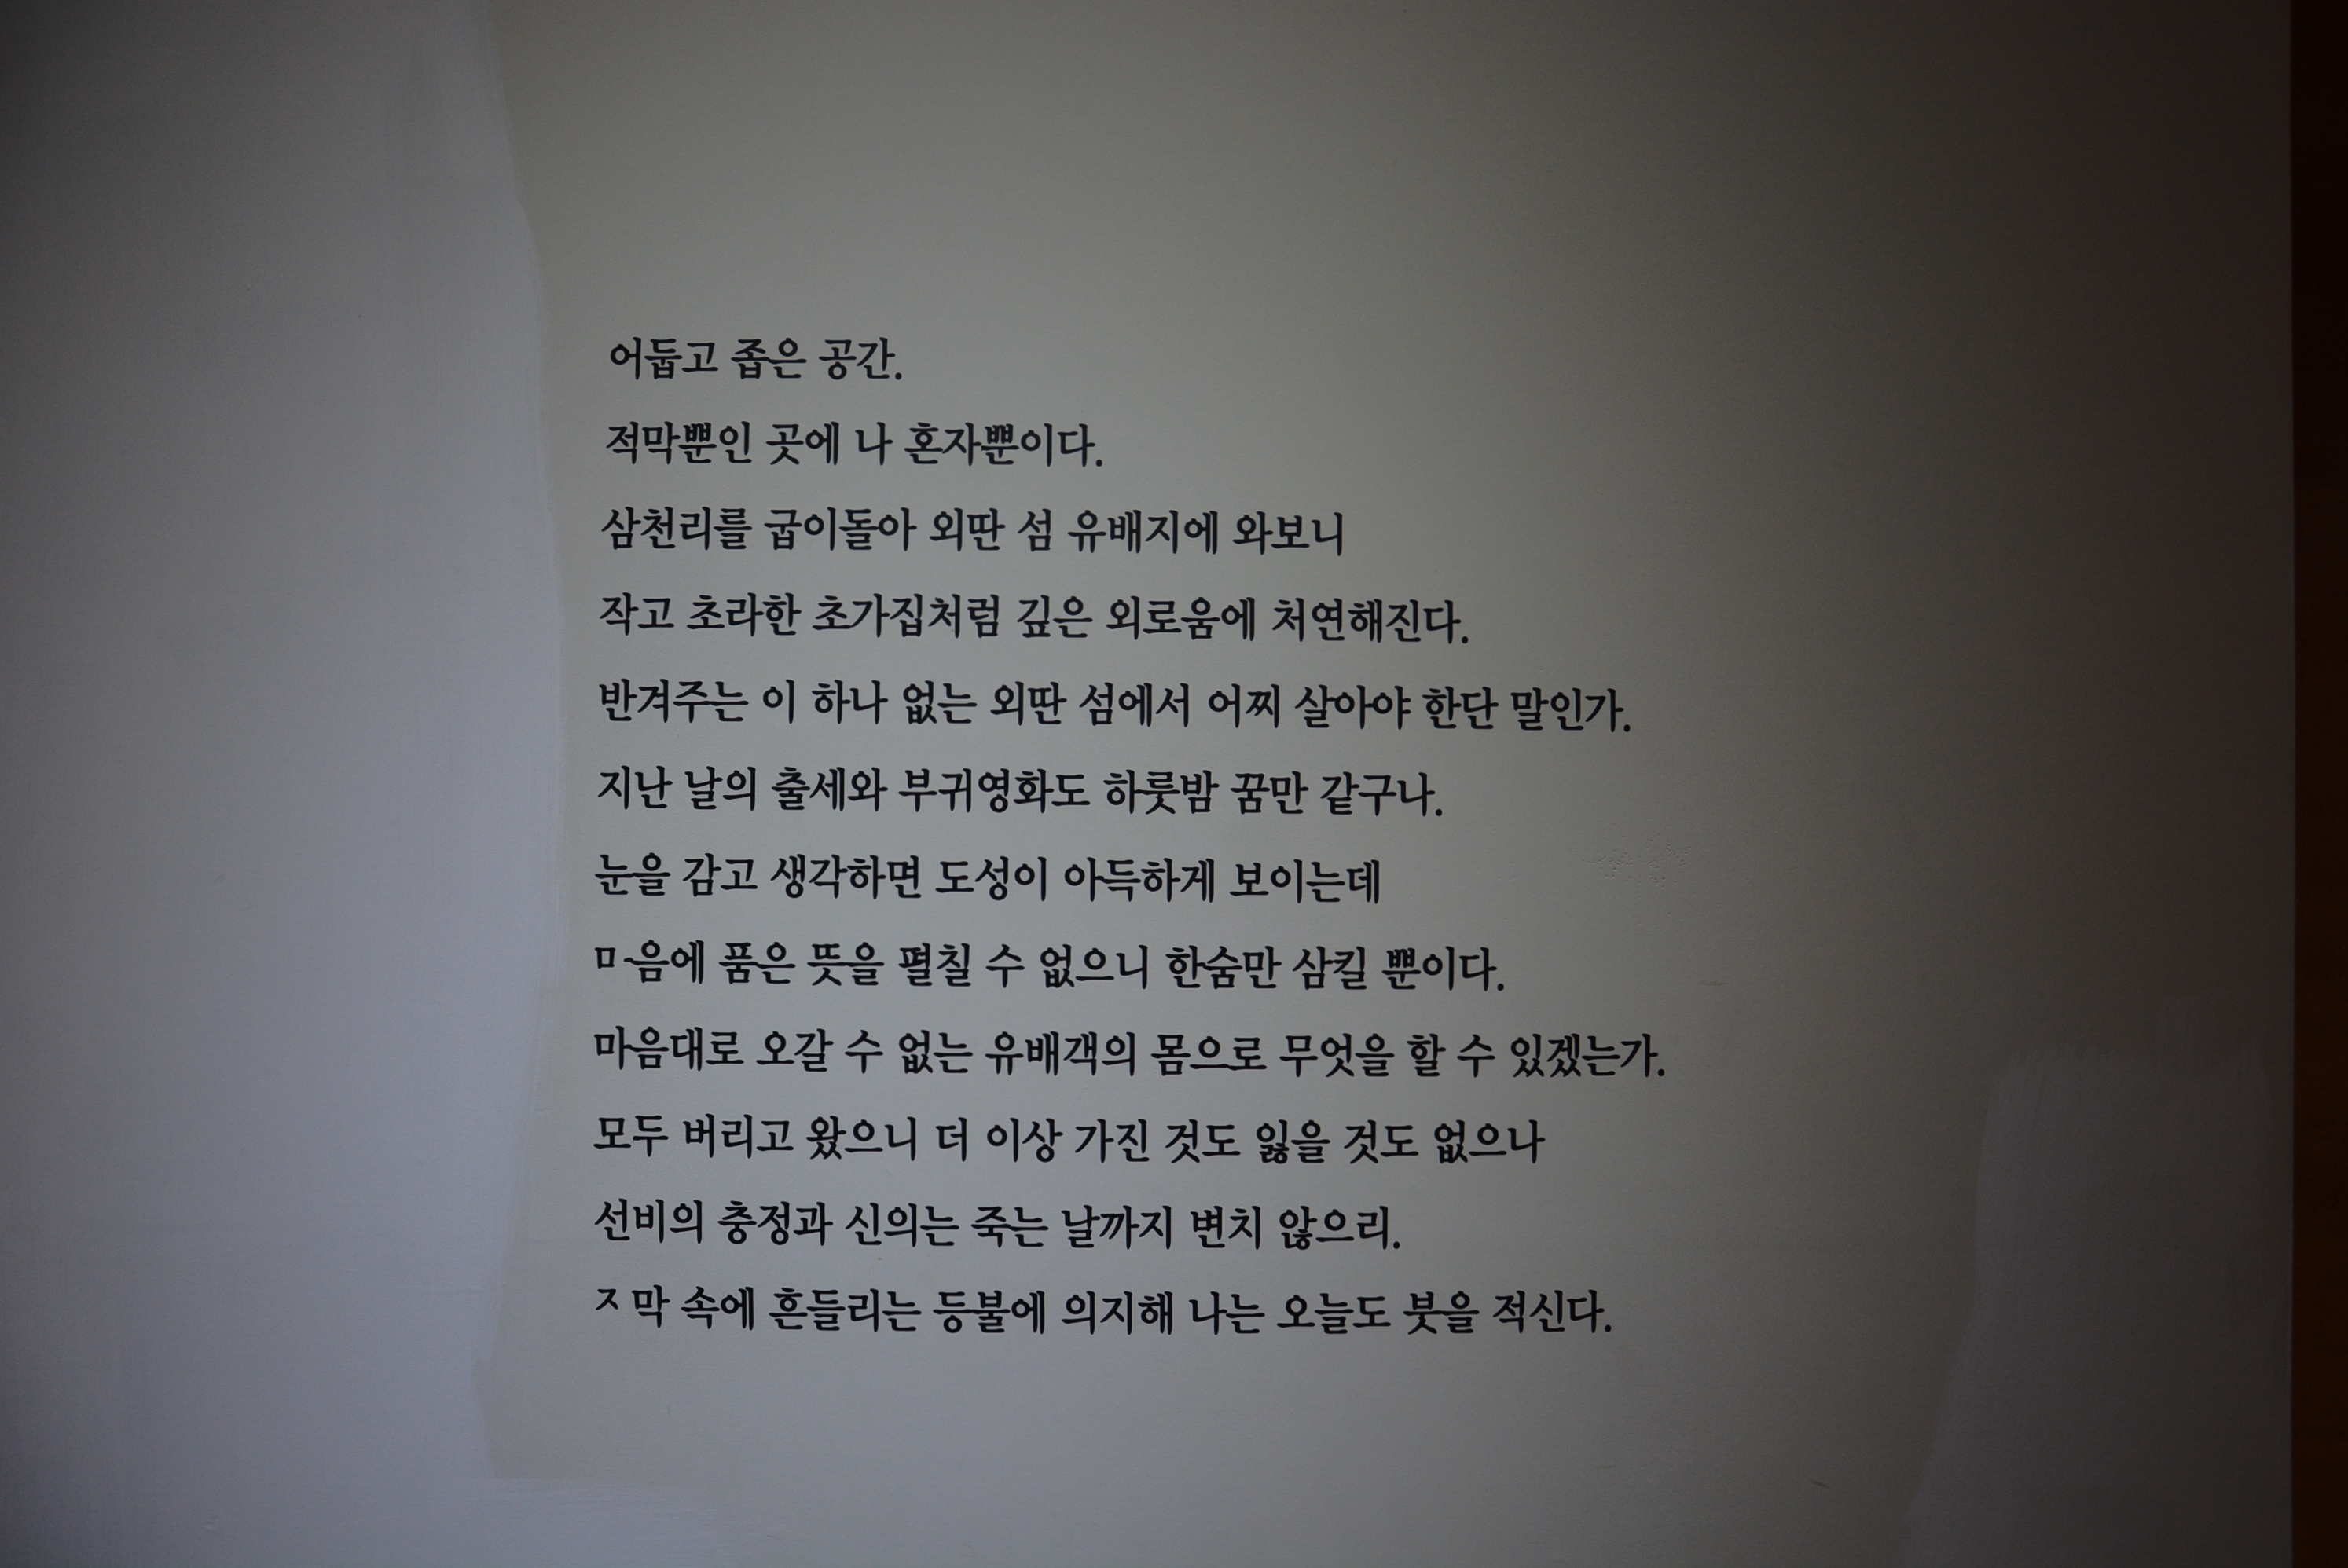 어둡고 좁은 공간.
적막뿐인 곳에 나 혼자뿐이다.
삼천리를 굽이돌아 외딴 섬 유배지에 와보니
작고 초라한 초가집처럼 깊은 외로움에 처연해진다.
반겨주는 이 하나 없는 외딴 섬에서 어찌 살아야 한단 말인가.
지난 날의 출세와 부귀영화도 하룻밤 꿈만 같구나.
눈을 감고 생각하면 도성이 아득하게 보이는데
마음에 품은 뜻을 펼칠 수 없으니 한숨만 삼킬 뿐이다.
마음대로 오갈 수 없는 유배객의 몸으로 무엇을 할 수 있겠는가.
모두 버리고 왔으니 더 이상 가진 것도 잃을 것도 없으나
선비의 충정과 신의는 죽는 날까지 변치 않으리.
ㅈ막 속에 흔들리는 등불에 의지해 나는 오늘도 붓을 적신다.